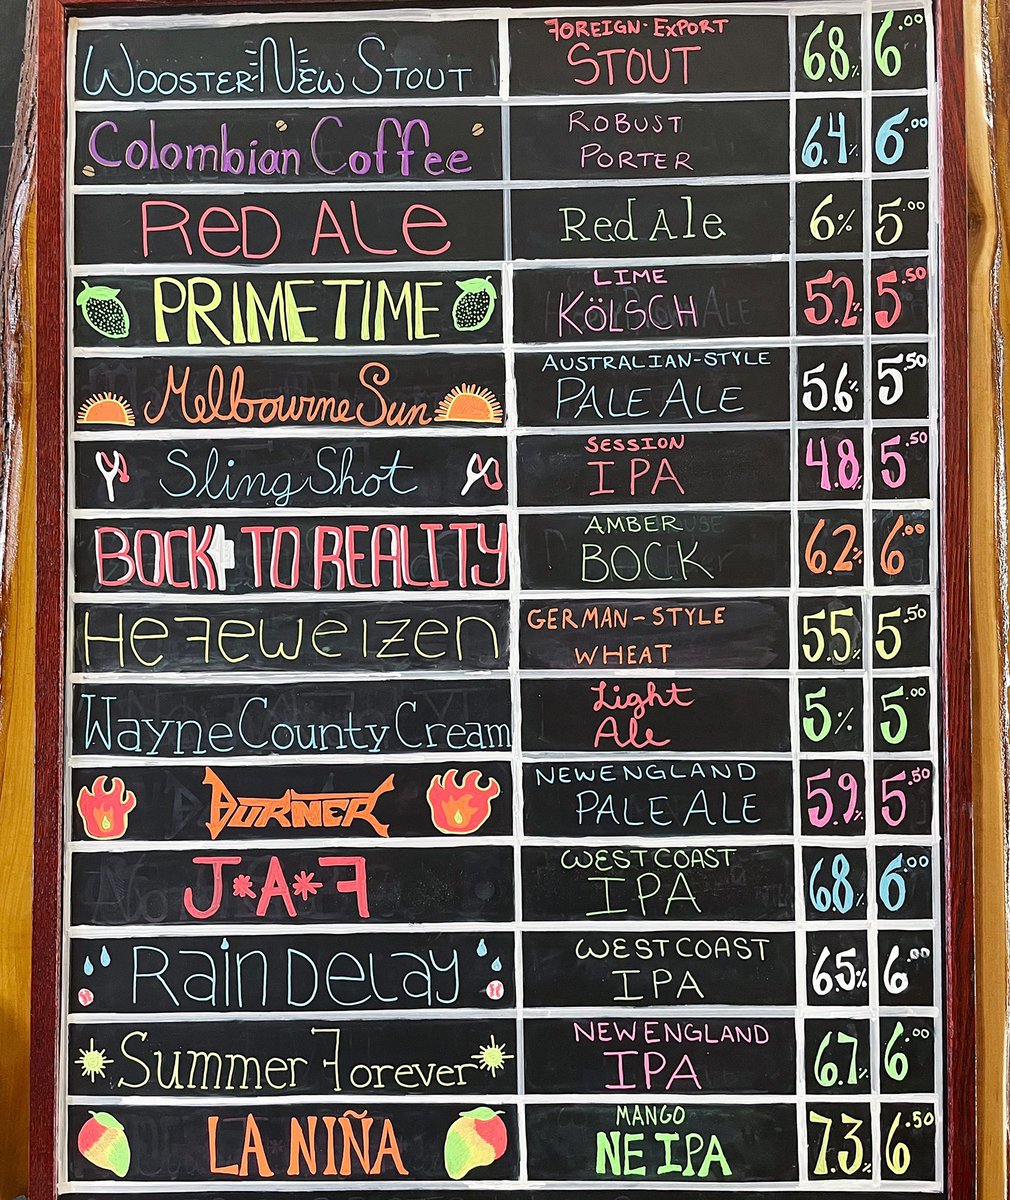 Wooster New Stout
FOREIGN-EXPORT
STOUT
6.8% 6.00
Colombian Coffee
ROBUST
PORTER
6.4% 6.00
RED ALE
Red Ale
6% 5.00
PRIME TIME
LIME
KÖLSCH
5.2% 5.50
Melbourne Sun
AUSTRALIAN-STYLE
PALE ALE
5.6% 5.50
Sling Shot
SESSION
IPA
4.8% 5.50
BOCK TO REALITY
AMBER
BOCK
6.2% 6.00
HEFEWEIZEN
GERMAN-STYLE
WHEAT
5.5% 5.50
Wayne County Cream
Light
Ale
5% 5.00
BURNER
NEW ENGLAND
PALE ALE
5.9% 5.50
J*A*F
WEST COAST
IPA
6.8% 6.00
RAIN DELAY
WEST COAST
IPA
6.5% 6.00
Summer Forever
NEW ENGLAND
IPA
6.7% 6.00
LA NIÑA
MANGO
NE IPA
7.3% 6.50